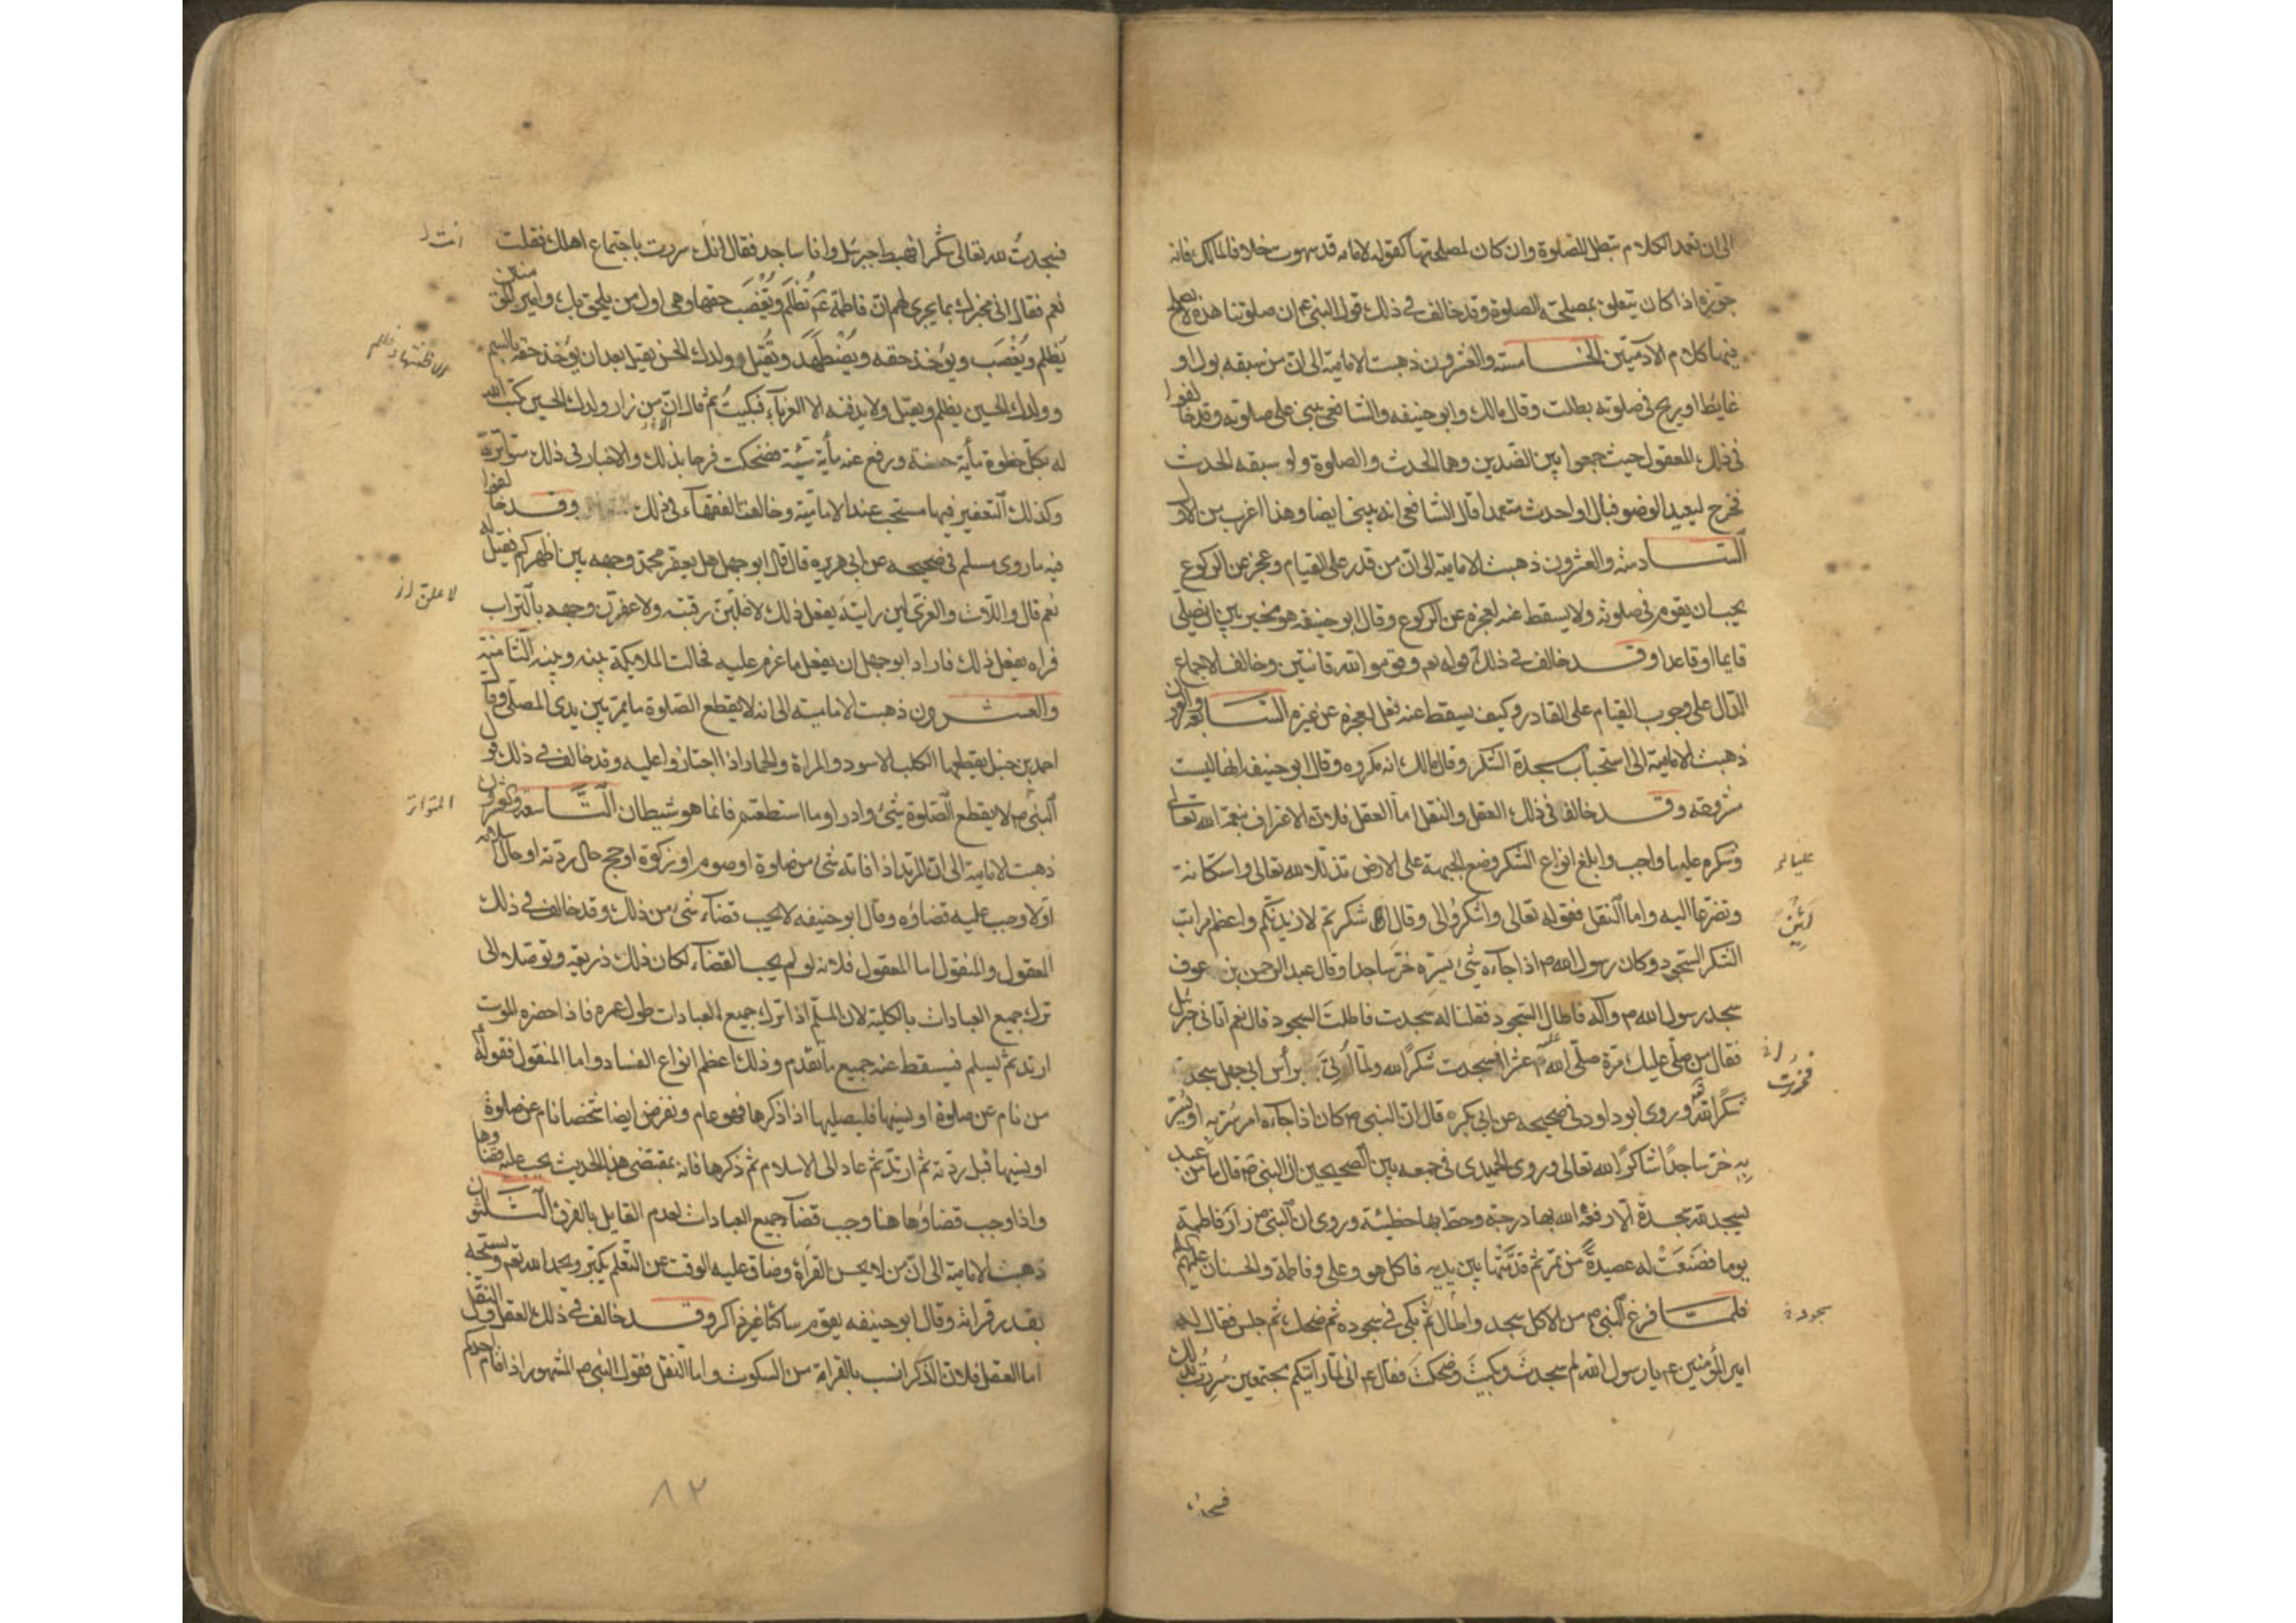 الى ان تعمد الكلام تبطل الصلوة وان كان لمصلحتها كقوله لامامه قد سهوت خلافا لمالك فانه
جوزه اذا كان يتعلق بمصلحة الصلوة وقد خالف فى ذلك قول النبى عم ان صلوتنا هذه لا يصلح
فيها كلام الآدميين الخامسة والعشرون ذهبت الامامية الى ان من سبقه بول او
غايط او ريح فى صلوته بطلت وقال مالك وابو حنيفه والشافعى يبنى على صلوته وقد خالفوا
فى ذلك المعقول حيث جمعوا بين الضدين وهما الحدث والصلوة ولو سبقه الحدث
فخرج ليعيد الوضو فبال او احدث متعمدا قال الشافعى انه يبنى ايضا وهذا اغرب من الاول
السادسة والعشرون ذهبت الامامية الى ان من قدر على القيام وعجز عن الركوع
يجب ان يقوم فى صلوته ولا يسقط عنه لعجزه عن الركوع وقال ابو حنيفه هو مخير بين ان يصلى
قايما او قاعدا وقد خالف فى ذلك قوله تعم وقوموا لله قانتين وخالف الاجماع
الدال على وجوب القيام على القادر وكيف يسقط عنه فعل لعجزه عن غيره السابعة والعشرون
ذهبت الامامية الى استحباب سجدة الشكر وقال مالك انه مكروه وقال ابو حنيفه انها ليست
مشروعه وقد خالفا فى ذلك العقل والنقل اما العقل فلان الاعتراف بنعمة الله تعالى
وشكره عليها واجب وابلغ انواع الشكر وضع الجبهة على الارض تذللا لله تعالى واستكانة
علينا
وتضرعا اليه واما النقل فقوله تعالى واشكروا لى وقال لئن شكرتم لازيدنكم واعظم مراتب
لئن
الشكر السجود وكان رسول الله ص اذا جآءه شئ يسره خر ساجدا وقال عبد الرحمن بن عوف
سجد رسول الله ص وآله فاطال السجود فقلنا له سجدت فاطلت السجود قال نعم اتانى جبرئيل
فقال من صلى عليك مرة صلى الله عليه عشرا فسجدت شكرا لله ولما اتى برأس ابى جهل سجد
فخررت
شكرا لله وروى ابو داود فى صحيحه عن ابى بكره قال ان النبى ص كان اذا جآءه امر يسر به او بشر
به خر ساجدا شاكرا لله تعالى وروى الحميدى فى جمعه بين الصحيحين ان النبى ص قال ما من عبد
يسجد لله سجدة الا رفعه الله بها درجة وحط بها خطيئة وروى ان النبى ص زار فاطمة
يوما فصنعت له عصيدة من تمر ثم قدمتها بين يديه فاكل هو وعلى وفاطمة والحسنان عليهم
فلما فرغ النبى ص من الاكل سجد واطال ثم بكى فى سجوده ثم ضحك ثم جلس فقال له
سجوده
امير المؤمنين عم يا رسول الله لم سجدت وبكيت وضحكت فقال عم انى لما رايتكم مجتمعين سررت بذلك
فسجدت
فسجدت لله تعالى شكرا فهبط جبرئيل وانا ساجد فقال انك سررت باجتماع اهلك فقلت
انت
نعم فقال انى مخبرك بما يجرى لهم ان فاطمة عم تظلم وتغصب حقها وهى اول من يلحق بك وامير المؤمنين
يظلم ويغصب ويؤخذ حقه ويضطهد ويقتل وولدك الحسن يقتل بعد ان يؤخذ حقه بالسم
وولدك الحسين يظلم ويقتل ولا يدفنه الا الغربآء فبكيت ثم قال ان من زار ولدك الحسين كتب الله
له بكل خطوة مأية حسنة ورفع عنه مأية سيئة فضحكت فرحا بذلك والاخبار فى ذلك متواترة
وكذلك التعفير فيها مستحب عند الامامية وخالفت الفقهآء فى ذلك وقد خالفوا
فيه ما روى مسلم فى صحيحه عن ابى هريره قال قال ابو جهل هل يعفر محمد وجهه بين اظهركم فقيل له
نعم قال واللات والعزى لين رايته يفعل ذلك لاغلبن رقبته ولاعفرن وجهه بالتراب
فراه يفعل ذلك فاراد ابو جهل ان يفعل ما عزم عليه فحالت الملايكة بينه وبينه الثامنة
والعشرون ذهبت الامامية الى انه لا يقطع الصلوة ما يمر بين يدى المصلى وقال
احمد بن حنبل يقطعها الكلب الاسود والمراة والحمار اذا اجتازوا عليه وقد خالف فى ذلك قول
النبى ص لا يقطع الصلوة شئ وادراوا ما استطعتم فانما هو شيطان التاسعة والعشرون
المتواتر
ذهبت الامامية الى ان المرتد اذا فاته شئ من صلوة او صوم او زكوة او حج حال ردته او حال اسلامه
اولا وجب عليه قضاؤه وقال ابو حنيفه لا يجب قضآء شئ من ذلك وقد خالف فى ذلك
المعقول والمنقول اما المعقول فلانه لو لم يجب القضآء لكان ذلك ذريعة وتوصلا الى
ترك جميع العبادات بالكلية لان المسلم اذا ترك جميع العبادات طول عمره فاذا حضره الموت
ارتد ثم يسلم فيسقط عنه جميع ما تقدم وذلك اعظم انواع الفساد واما المنقول فقوله
من نام عن صلوة او نسيها فليصليها اذا ذكرها فهو عام ونفرض ايضا شخصا نام عن صلوة
او نسيها قبل ردته ثم ارتد ثم عاد الى الاسلام ثم ذكرها فانه بمقتضى هذا الحديث يجب عليه قضاوها
واذا وجب قضاؤها هنا وجب قضآء جميع العبادات لعدم القايل بالفرق الثلثون
ذهبت الامامية الى ان من لا يحسن القراة وضاق عليه الوقت عن التعلم يكبر ويحمد الله تعم ويسبحه
بقدر قراته وقال ابو حنيفه يقوم ساكتا غير ذاكر وقد خالف فى ذلك العقل والنقل
اما العقل فلان الذكر انسب بالقراة من السكوت واما النقل فقول النبى ص المشهور اذا قام احدكم
٨٢